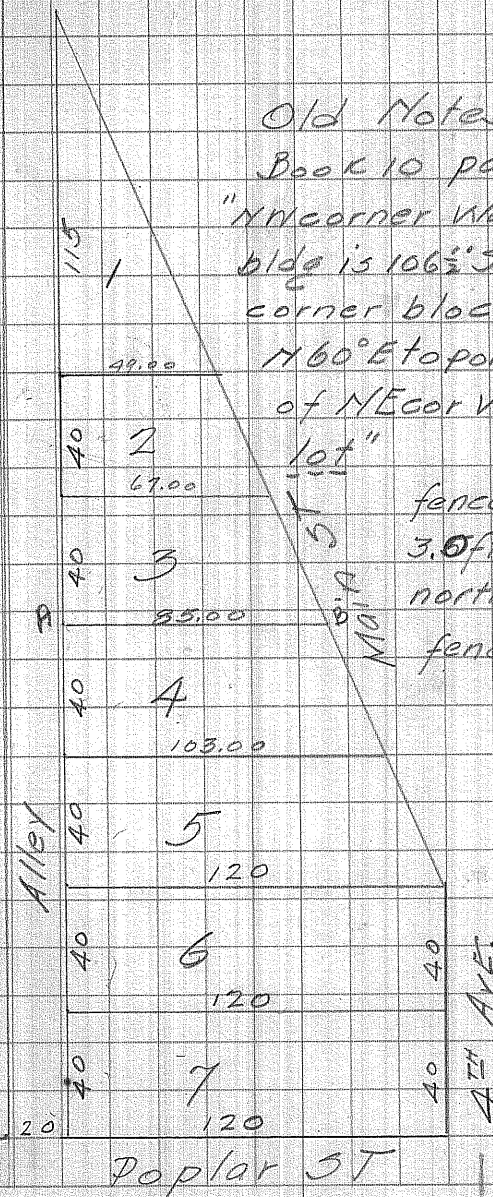 Old Notes
Book 10 pa
"NW corner
bldg is 106½' S
corner bloc
N60°E to poi
of NE cor
lot"
fence
3.0 ft
north
fenc
115
1
49.00
40
2
67.00
40
3
85.00
40
4
103.00
40
5
120
40
6
40
120
40
7
40
20
120
Alley
Main ST
4TH AVE.
Poplar ST